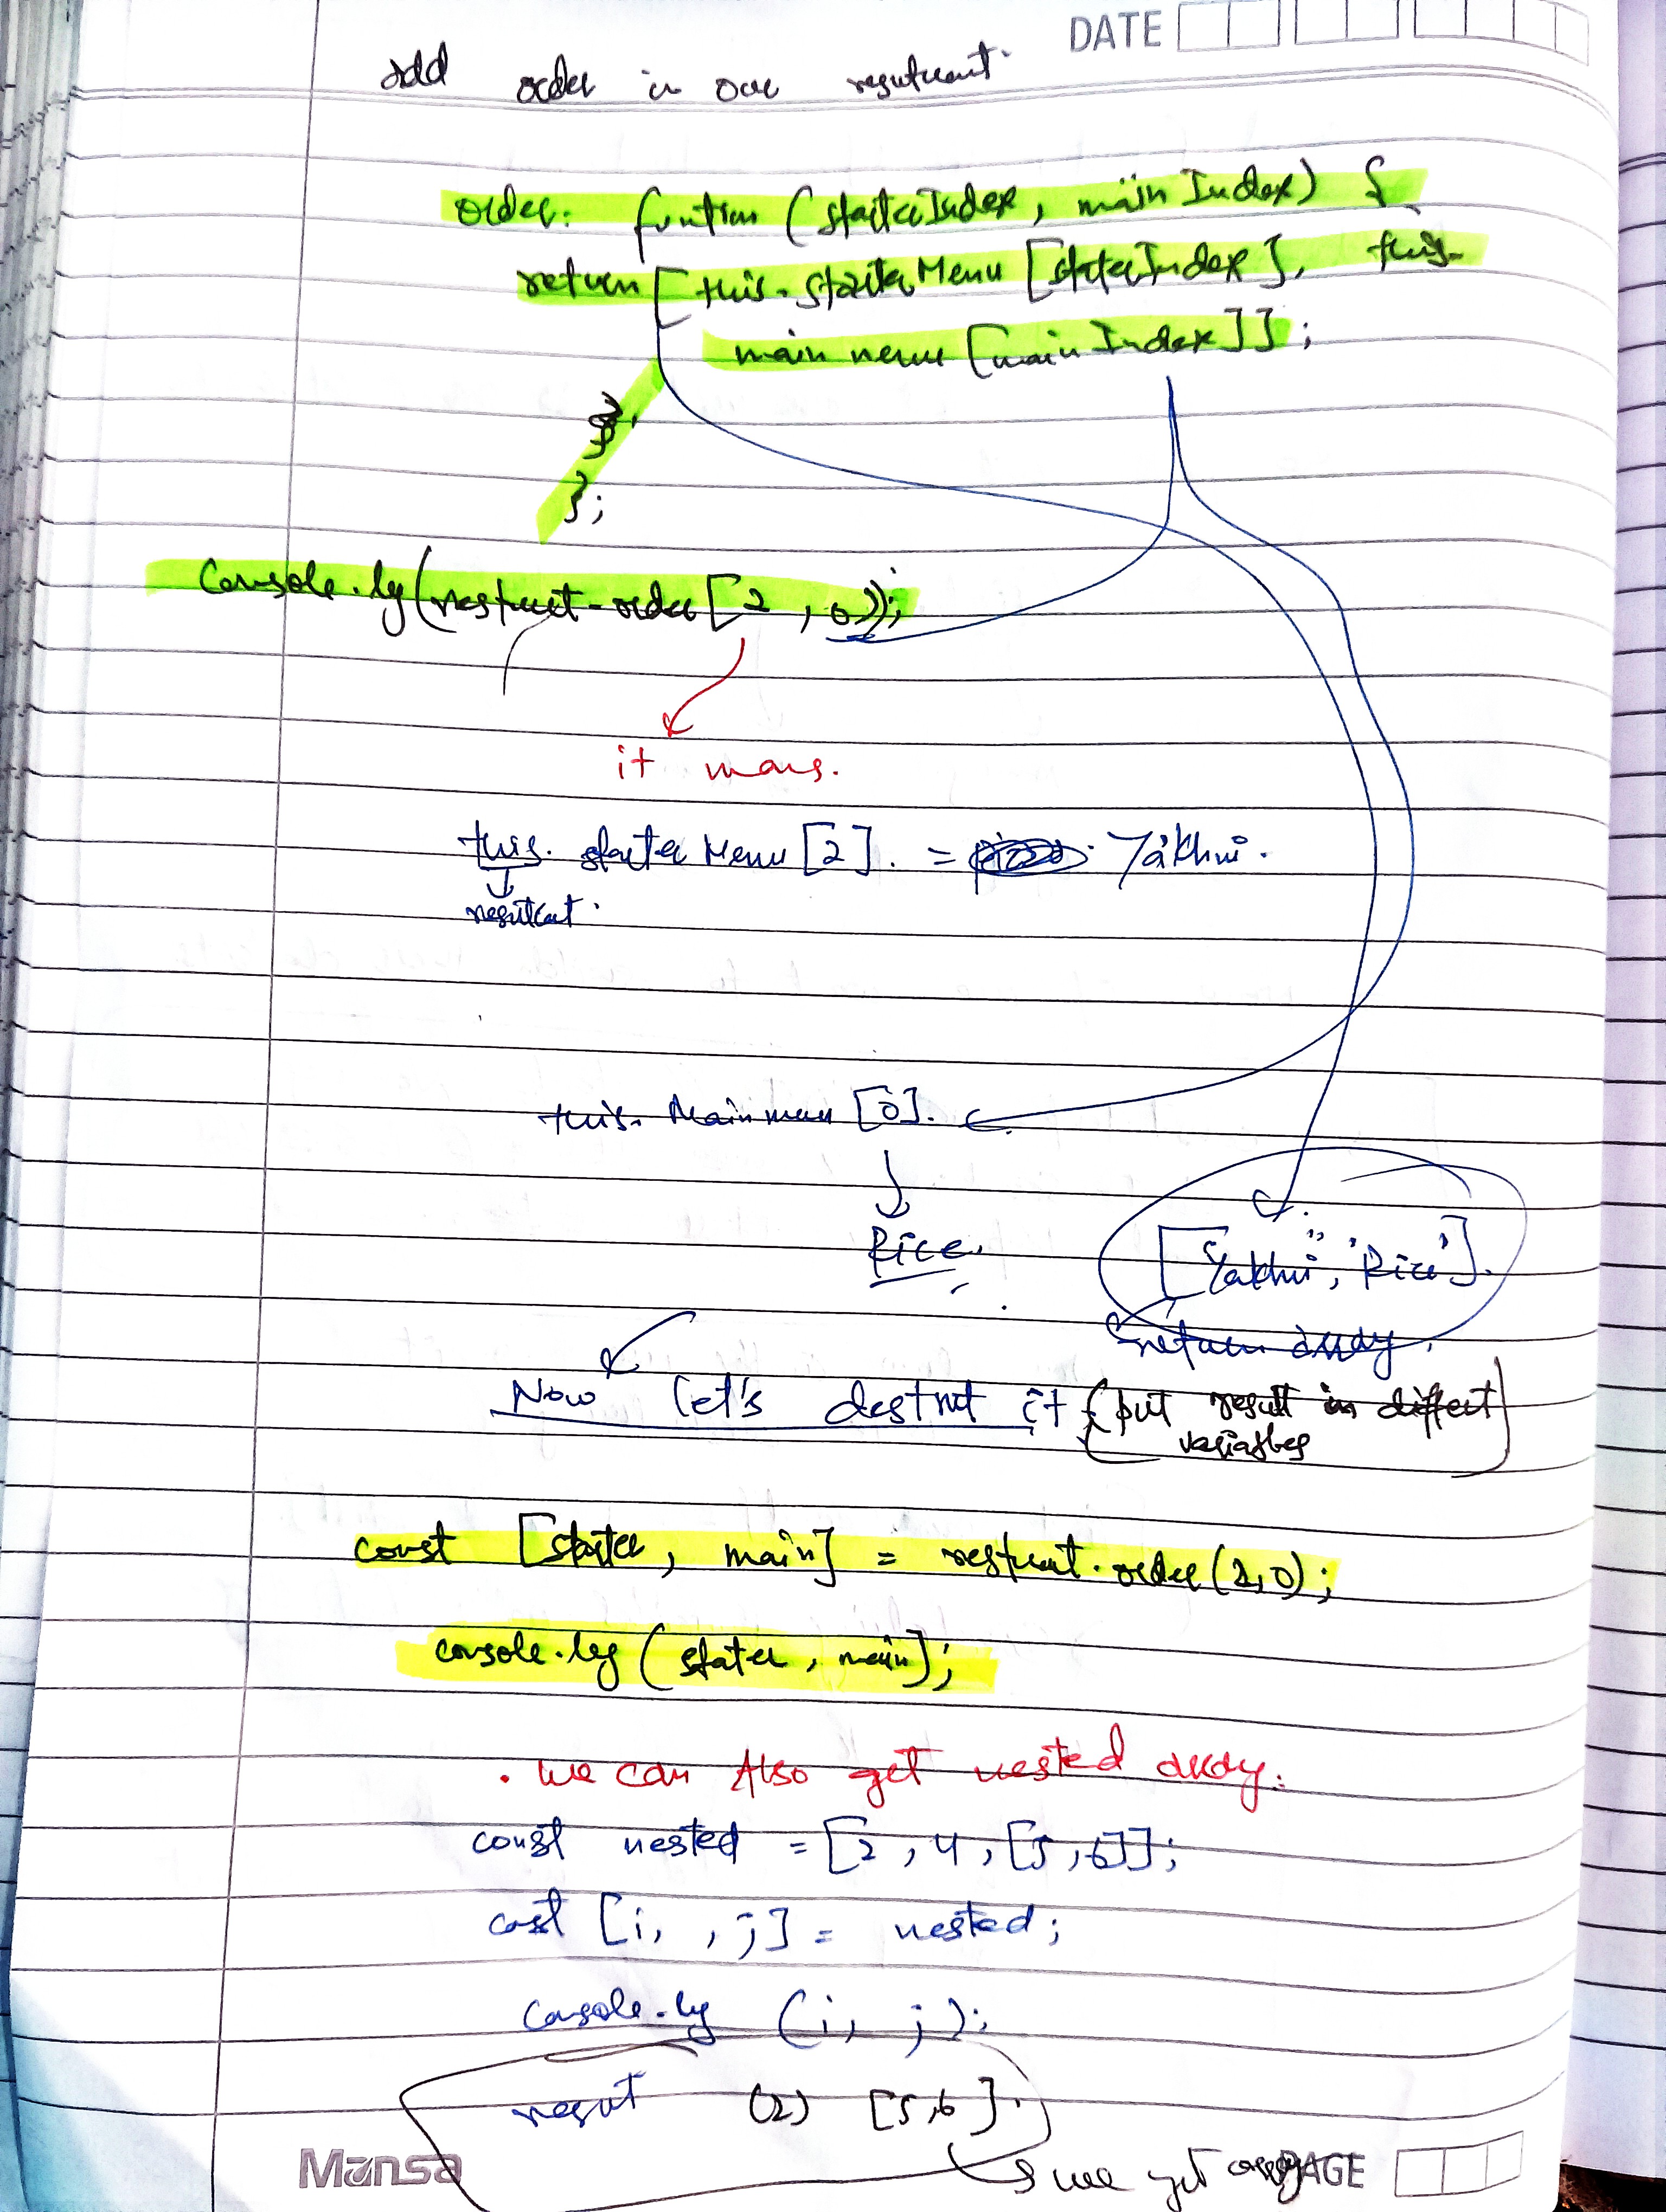 DATE
add order in our resturant.
order: funtion (starterIndex, mainIndex) {
return [this.starterMenu [starterIndex], this.
main menu [mainIndex]];
},
};
Console.log(resturant.order[2, 0));
it means.
this. starter Menu [2]. = Yakhni.
resturant.
this. Main menu [0].
Rice.
["Yakhni", 'Rice'].
return array.
Now let's destruct it (put result in different
variables
const [starter, main] = resturant.order(2,0);
console.log (starter, main);
. we can Also get nested array.
const nested = [2, 4, [5,6]];
const [i, , j] = nested;
Console.log (i, j);
result (2) [5,6].
we get array
Mansa
PAGE